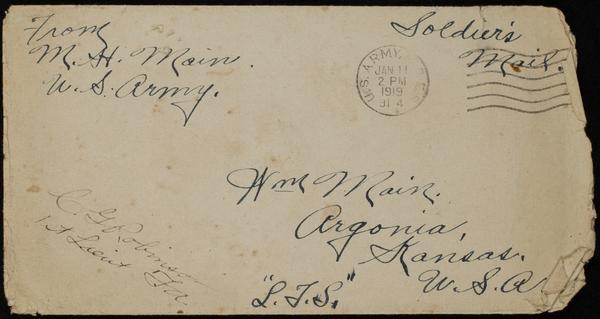 From
M. H. Main.
U.S. Army.
Soldier's
Mail.
U.S. ARMY
JAN 11
2 PM
1919
Wm Main.
Argonia,
Kansas.
U.S.A
C. G. Robinson
1st Lieut